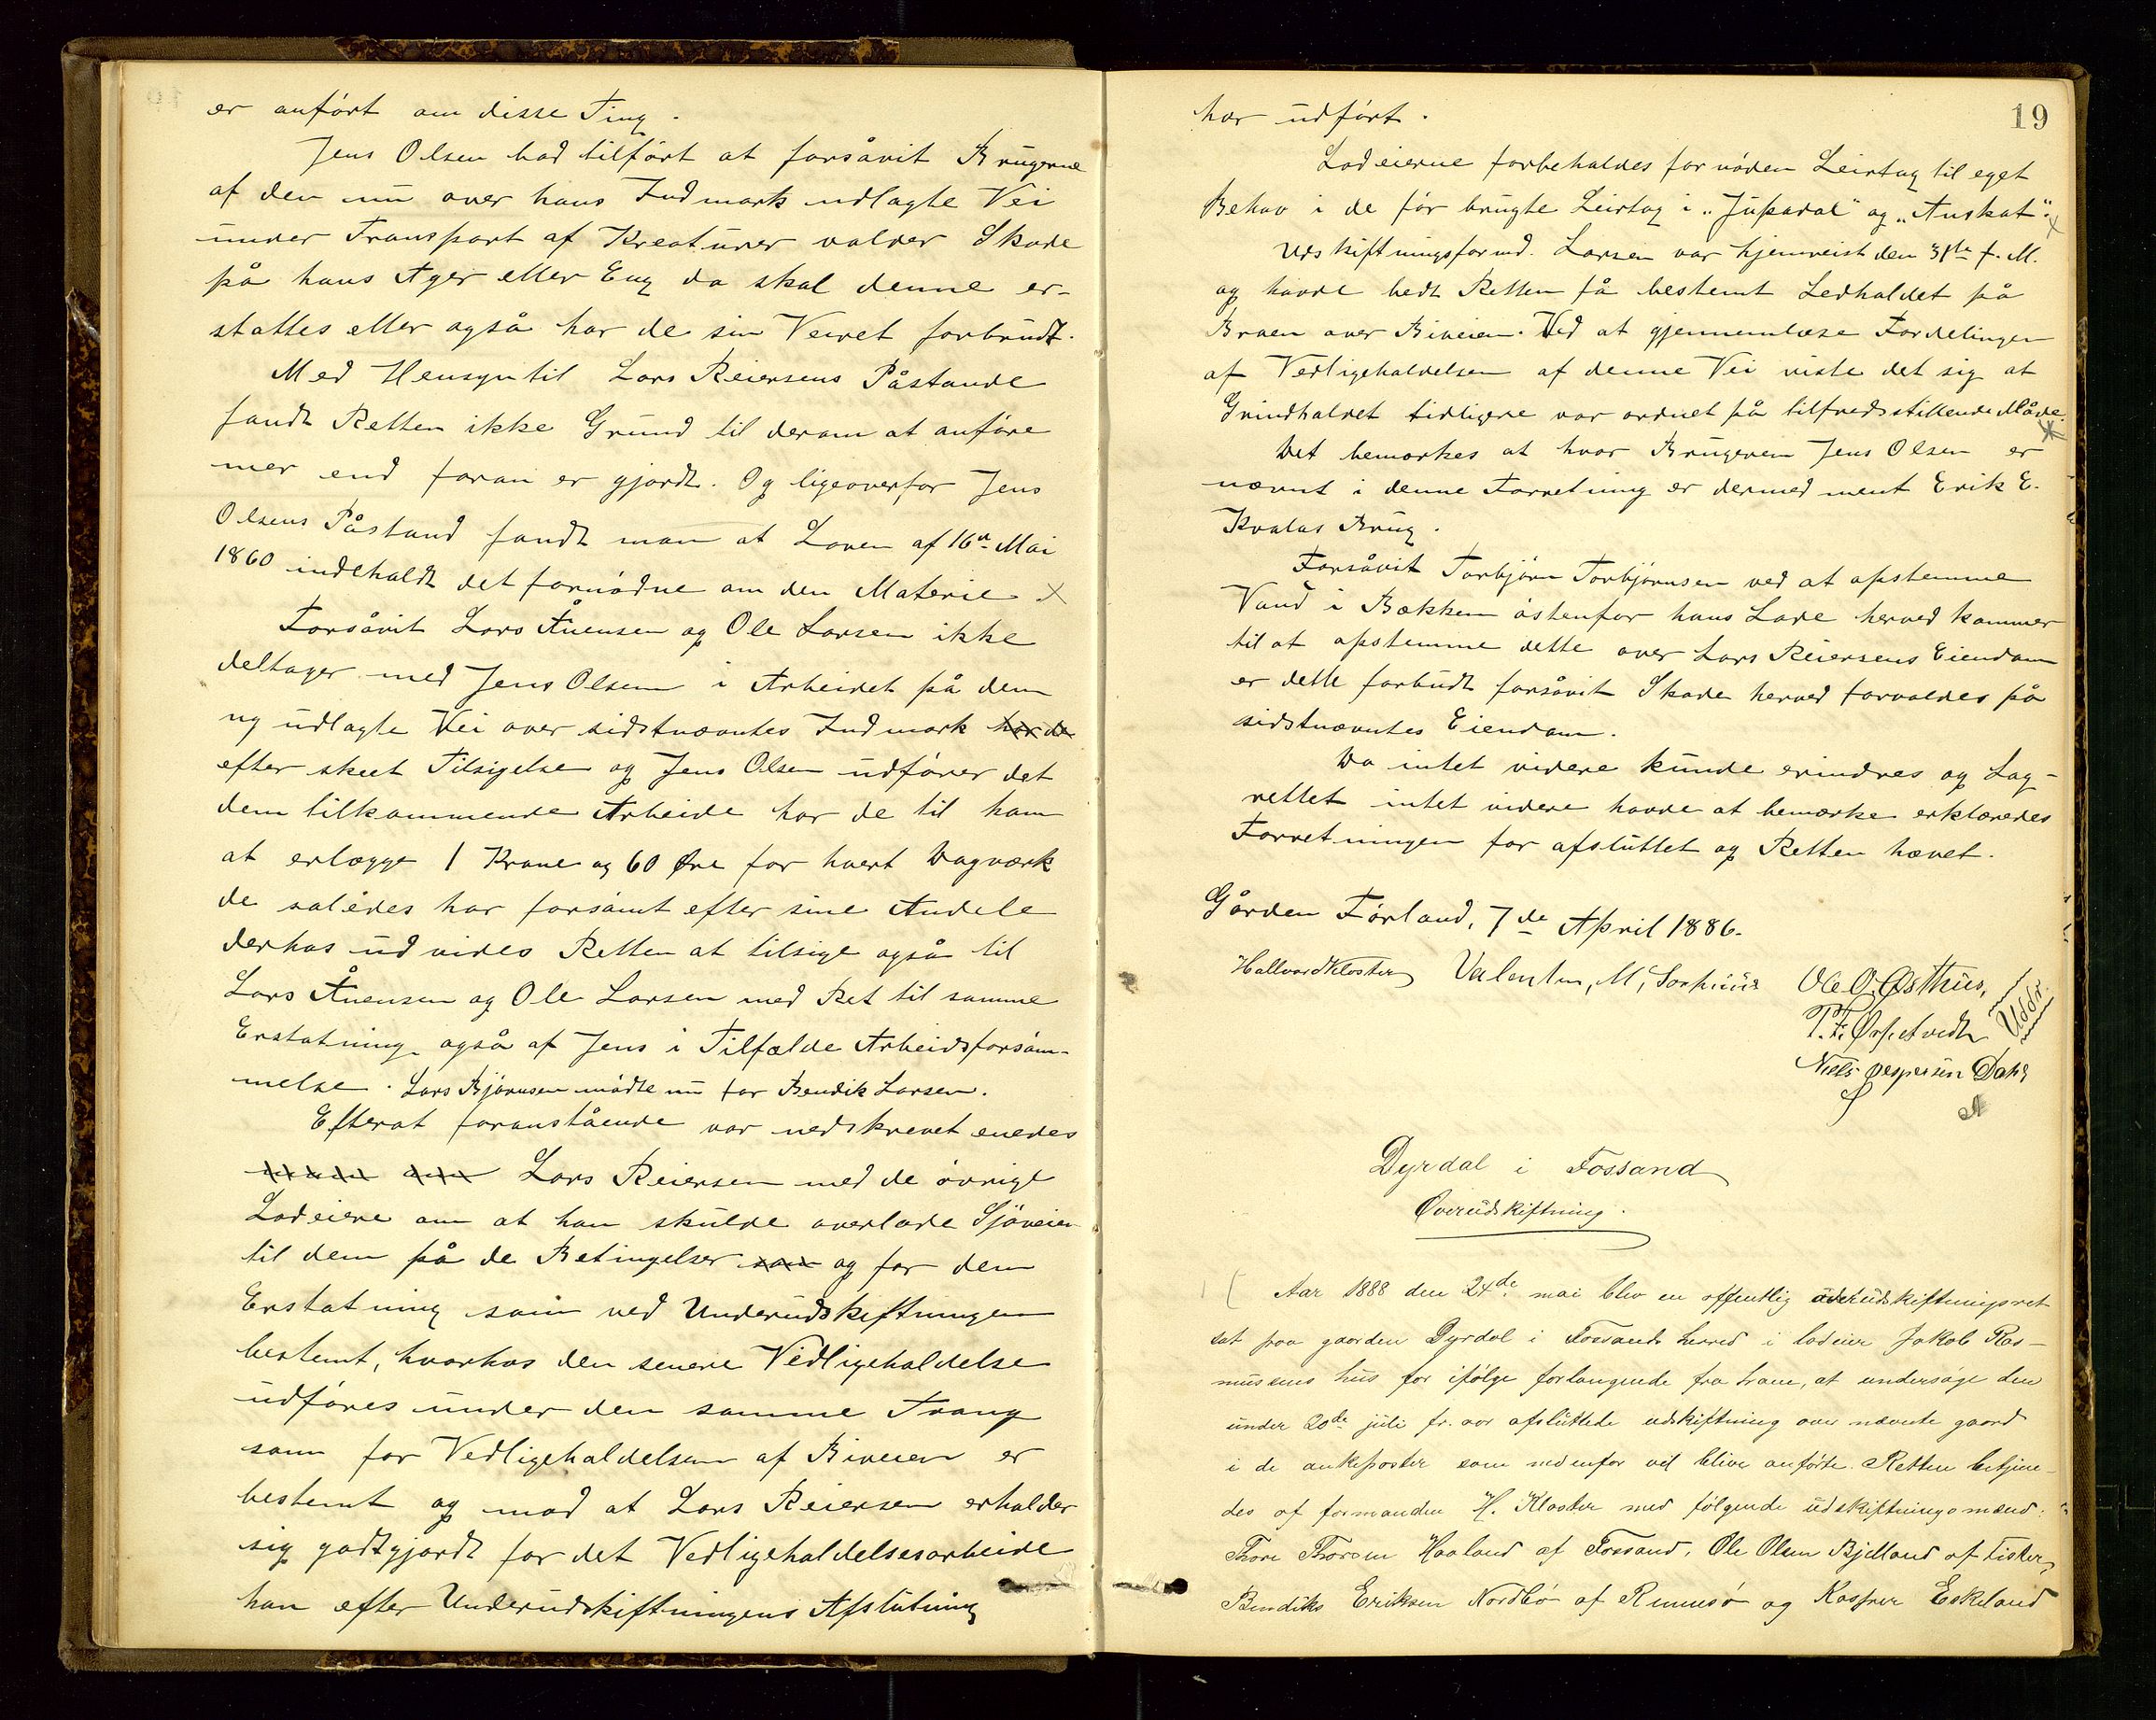 er anført om disse Ting.
Jens Olsen had tilført at forsåvit Brugerne
af den nu over hans Indmark udlagte Vei
under Transport af Kreaturer volder Skade
på hans Ager eller Eng da skal denne er-
stattes eller også har de sin Veiret forbrudt.
Med Hensyn til Lars Reiersens Påstande
fandt Retten ikke Grund til derom at anføre
mer end foran er gjordt. Og ligeoverfor Jens
Olsens Påstand fandt man at Loven af 16de Mai
1860 indeholdt det fornødne om den Materie. x
Forsåvit Lars Ånensen og Ole Larsen ikke
deltager med Jens Olsen i Arbeidet på den
ny udlagte Vei over sidstnævntes Indmark har de
efter skeet Tilsigelse og Jens Olsen udfører det
dem tilkommende Arbeide har de til ham
at erlægge 1 Krone og 60 Øre for hvert Dagværk
de således har forsømt efter sine Andele
derhos udvides Retten at tilsige også til
Lars Ånensen og Ole Larsen med Ret til samme
Erstatning også af Jens i Tilfælde Arbeidsforsøm-
melse. Lars Bjørnsen mødte nu for Bendik Larsen.
Efterat foranstående var nedskrevet enedes
Lars Reiersen med de øvrige
Lodeiere om at han skulde overlade Sjøveien
til dem på de Betingelser som og for den
Erstatning som ved Underudskiftningen
bestemt, hvorhos den senere Vedligeholdelse
udføres under den samme Tvang
som for Vedligeholdelsen af Biveien er
bestemt og mod at Lars Reiersen erholder
sig godtgjordt for det Vedligeholdelsesarbeide
han efter Underudskiftningens Afslutning
19
har udført.
Lodeierne forbeholdes fornøden Leirtag til eget
Behov i de før brugte Leirtag i "Jupadal" og "Anskat". x
Udskiftningsformd. Larsen var hjemreist den 31te f. M.
og havde bedt Retten få bestemt Ledholdet på
Broen over Biveien. Ved at gjennemlæse Fordelingen
af Vedligeholdelsen af denne Vei viste det sig at
Grindholdet tidligere var ordnet på tilfredsstillende Måde.
Det bemærkes at hvor Brugeren Jens Olsen er
nævnt i denne Forretning er dermed ment Erik E.
Kvalas Brug.
Forsåvit Torbjørn Torbjørnsen ved at opstemme
Vand i Bækken østenfor hans Lade herved kommer
til at opstemme dette over Lars Reiersens Eiendom
er dette forbudt forsåvit Skade herved forvoldes på
sidstnævntes Eiendom.
Da intet videre kunde erindres og Lag-
rettet intet videre havde at bemærke erklæredes
Forretningen for afsluttet og Retten hævet.
Gården Førland, 7de April 1886.
Hallvard Kloster Valentin, M, Ole O. Østhus,
T. F. Uddr.
Niels Jespersen Dahl
Dyrdal i Fossand
Overudskiftning.
Aar 1888 den 24de mai blev en offentlig overudskiftningsret
sat paa gaarden Dyrdal i Fossands herred i lodeier Jakob Ras-
mussens hus for ifølge forlangende fra ham, at undersøge den
under 20de juli fr. aar afsluttede udskiftning over nævnte gaard
i de ankeposter som nedenfor vil blive anførte. Retten betjene-
des af formanden H. Kloster med følgende udskiftningsmænd:
Thore Thorsen Haaland af Fossand, Ole Olsen Bjelland af Fister,
Bendiks Eriksen Nordbø af Rennesø og Kasper Eskeland